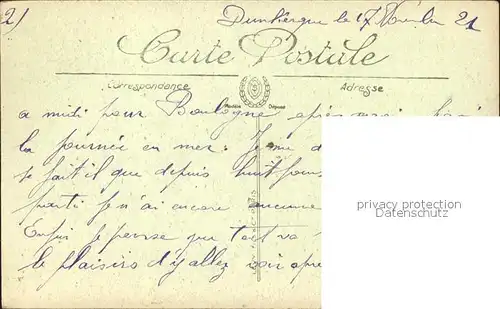 2)
Dunkerque le 17 21
Carte Postale
Correspondance Adresse
Modèle Déposé
a midi pour Boulogne après
la journée en mer. Je me d
se fait il que depuis huit jours
parti je n'ai encore aucune
Enfin je pense que tout va
le plaisirs d'y allez voir apre
privacy protection
Datenschutz